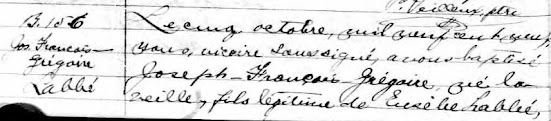 Veilleux, ptre
B. 156 Le cinq octobre, mil neuf cent onze,
Jos. François nous, vicaire soussigné, avons baptisé
Grégoire Joseph-François-Grégoire, né la
Labbé veille, fils légitime de Eusèbe Labbé,